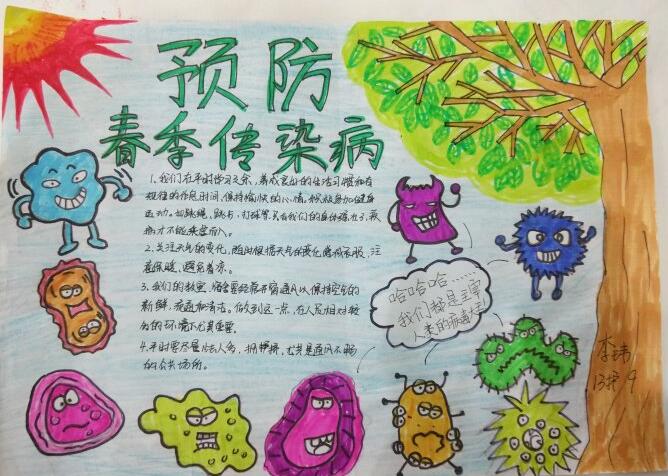 预防
春季传染病
1、我们在平时学习之余,养成良好的生活习惯和有
规律的作息时间,保持愉快的心情,积极参加健身
运动。如跳绳、跑步、打球等,只有我们的身体强壮了,疾
病才不能乘虚而入。
2、关注天气的变化,随时根据天气的变化增减衣服,注
意保暖、避免着凉。
3、我们的教室、宿舍要经常开窗通风以保持空气的
新鲜、流通和清洁。做到这一点,在人员相对较
的环境下尤其重要。
4、平时要尽量少去人多、拥挤、尤其是通风不畅
的公共场所。
哈哈哈……
我们都是主宰
人类的病毒大王
李玮
13护9